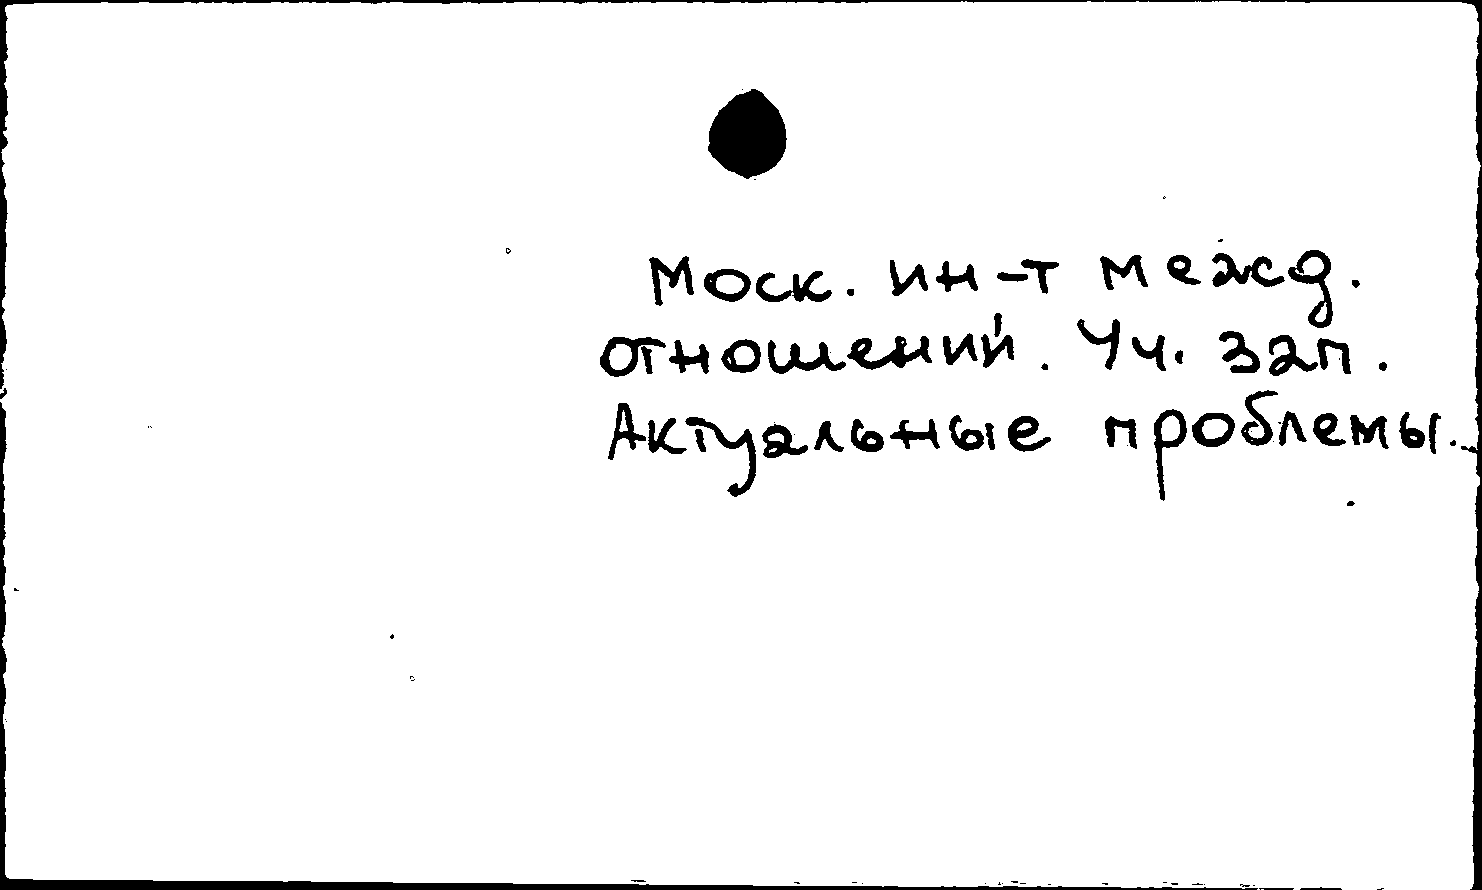 Моск. ин-т межд.
отношений. Уч. зап.
Актуальные проблемы...